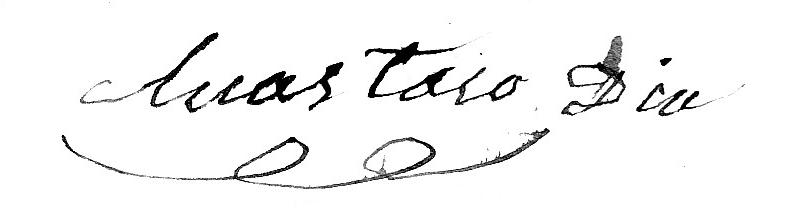 Anastasio Dia